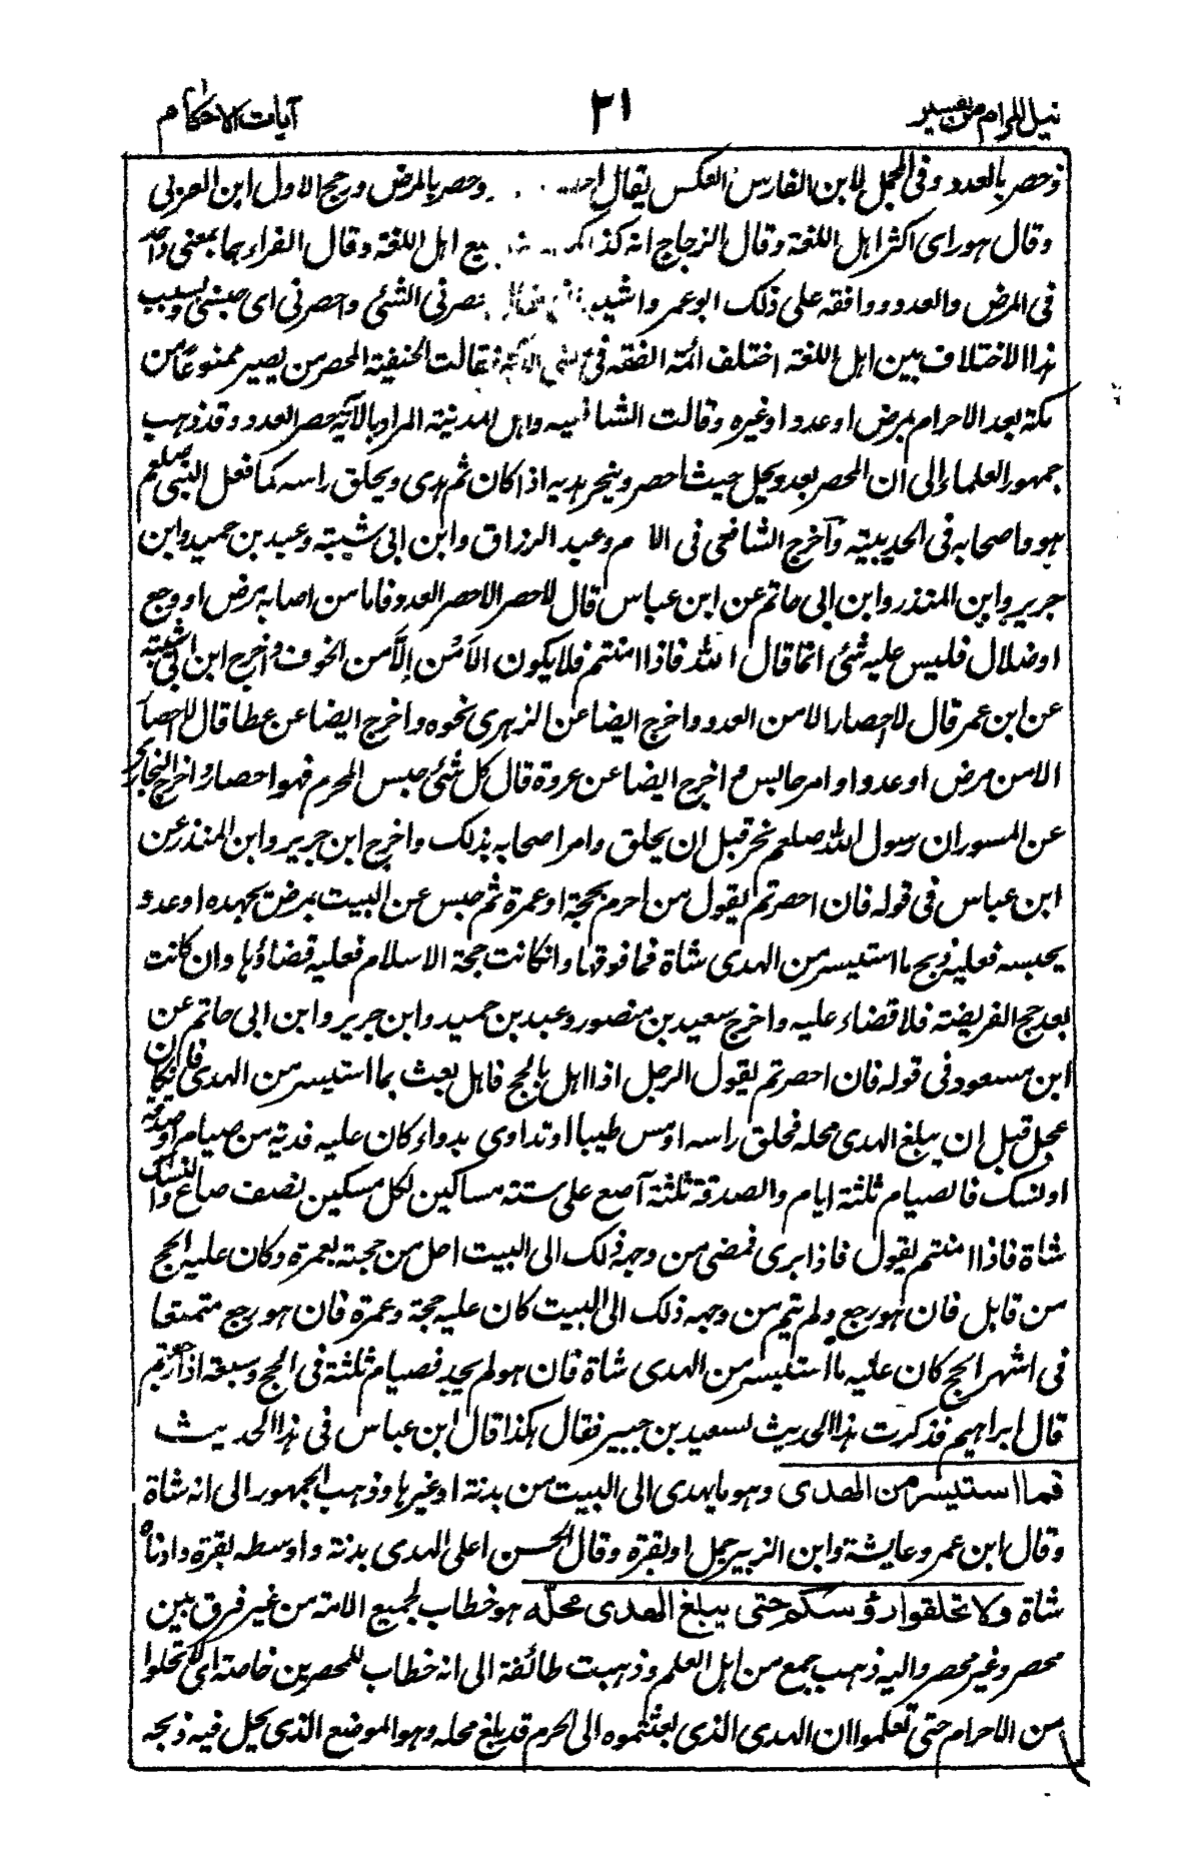 نيل المرام من تفسير ٢١ آيات الاحكام
وحصر بالعدو وفى المجمل لابن الفارس العكس يقال وحصر بالمرض ورجح الاول ابن العربى
وقال هو راى اكثر اهل اللغة وقال الزجاج انه كذلك اهل اللغة وقال الفراء هما بمعنى واحد
فى المرض والعدو ووافقه على ذلك ابو عمرو الشيبانى فقال حصرنى الشئ واحصرنى اى حبسنى وبسبب
هذا الاختلاف بين اهل اللغة اختلف ائمة الفقه فى معنى الآية فقالت الحنفية المحصر من يصير ممنوعا من
مكة بعد الاحرام بمرض او عدو او غيره وقالت الشافعية واهل المدينة المراد بالآية حصر العدو وقد ذهب
جمهور العلماء الى ان المحصر بعدو يحل حيث احصر وينحر هديه اذا كان ثم هدى ويحلق راسه كما فعل النبى صلعم
هو واصحابه فى الحديبية وآخرج الشافعى فى الام وعبد الرزاق وابن ابى شيبة وعبد بن حميد وابن
جرير وابن المنذر وابن ابى حاتم عن ابن عباس قال لاحصر الاحصر العدو فاما من اصابه مرض او وجع
او ضلال فليس عليه شئ انما قال الله فاذا امنتم فلا يكون الاَمْن اِلاَّ من الخوف واخرج ابن ابى شيبة
عن ابن عمر قال لا احصار الا من العدو واخرج ايضا عن الزهرى نحوه واخرج ايضا عن عطا قال لا احصار
الا من مرض او عدو او امر حابس واخرج ايضا عن عروة قال كل شئ حبس المحرم فهو احصار واخرج البخارى
عن المسور ان رسول الله صلعم نحر قبل ان يحلق وامر اصحابه بذلك واخرج ابن جرير وابن المنذر عن
ابن عباس فى قوله فان احصرتم يقول من احرم بحجة او عمرة ثم حبس عن البيت بمرض يجهده او عدو
يحبسه فعليه ذبح ما استيسر من الهدى شاة فما فوقها وانكانت حجة الاسلام فعليه قضاؤها وان كانت
بعد حج الفريضة فلا قضاء عليه واخرج سعيد بن منصور وعبد بن حميد وابن جرير وابن ابى حاتم عن
ابن مسعود فى قوله فان احصرتم يقول الرجل اذا اهل بالحج فاهل بعث بما استيسر من الهدى فان كان
عجل قبل ان يبلغ الهدى محله فحلق راسه او مس طيبا او تداوى بدواء كان عليه فدية من صيام او صدقة
او نسك فالصيام ثلثة ايام والصدقة ثلثة آصع على ستة مساكين لكل مسكين نصف صاع والنسك
شاة فاذا امنتم يقول فاذا برى فمضى من وجهه ذلك الى البيت احل من حجته بعمرة وكان عليه الحج
من قابل فان هو رجع ولم يتم من وجهه ذلك الى البيت كان عليه حجة وعمرة فان هو رجع متمتعا
فى اشهر الحج كان عليه ما استيسر من الهدى شاة فان هو لم يجد فصيام ثلثة فى الحج وسبعة اذا رجعتم
قال ابراهيم فذكرت هذا الحديث لسعيد بن جبير فقال هكذا قال ابن عباس فى هذا الحديث
فما استيسر من الهدى وهو ما يهدى الى البيت من بدنة او غيرها وذهب الجمهور الى انه شاة
وقال ابن عمر وعايشة وابن الزبير جمل او بقرة وقال الحسن اعلى الهدى بدنة واوسطه بقرة وادناه
شاة ولا تحلقوا رؤسكم حتى يبلغ الهدى محلّه هو خطاب لجميع الامة من غير فرق بين
محصر وغير محصر واليه ذهب جمع من اهل العلم وذهبت طائفة الى انه خطاب للمحصرين خاصة اى لا تحلوا
من الاحرام حتى تعلموا ان الهدى الذى بعثتموه الى الحرم قد بلغ محله وهو الموضع الذى يحل فيه ذبحه